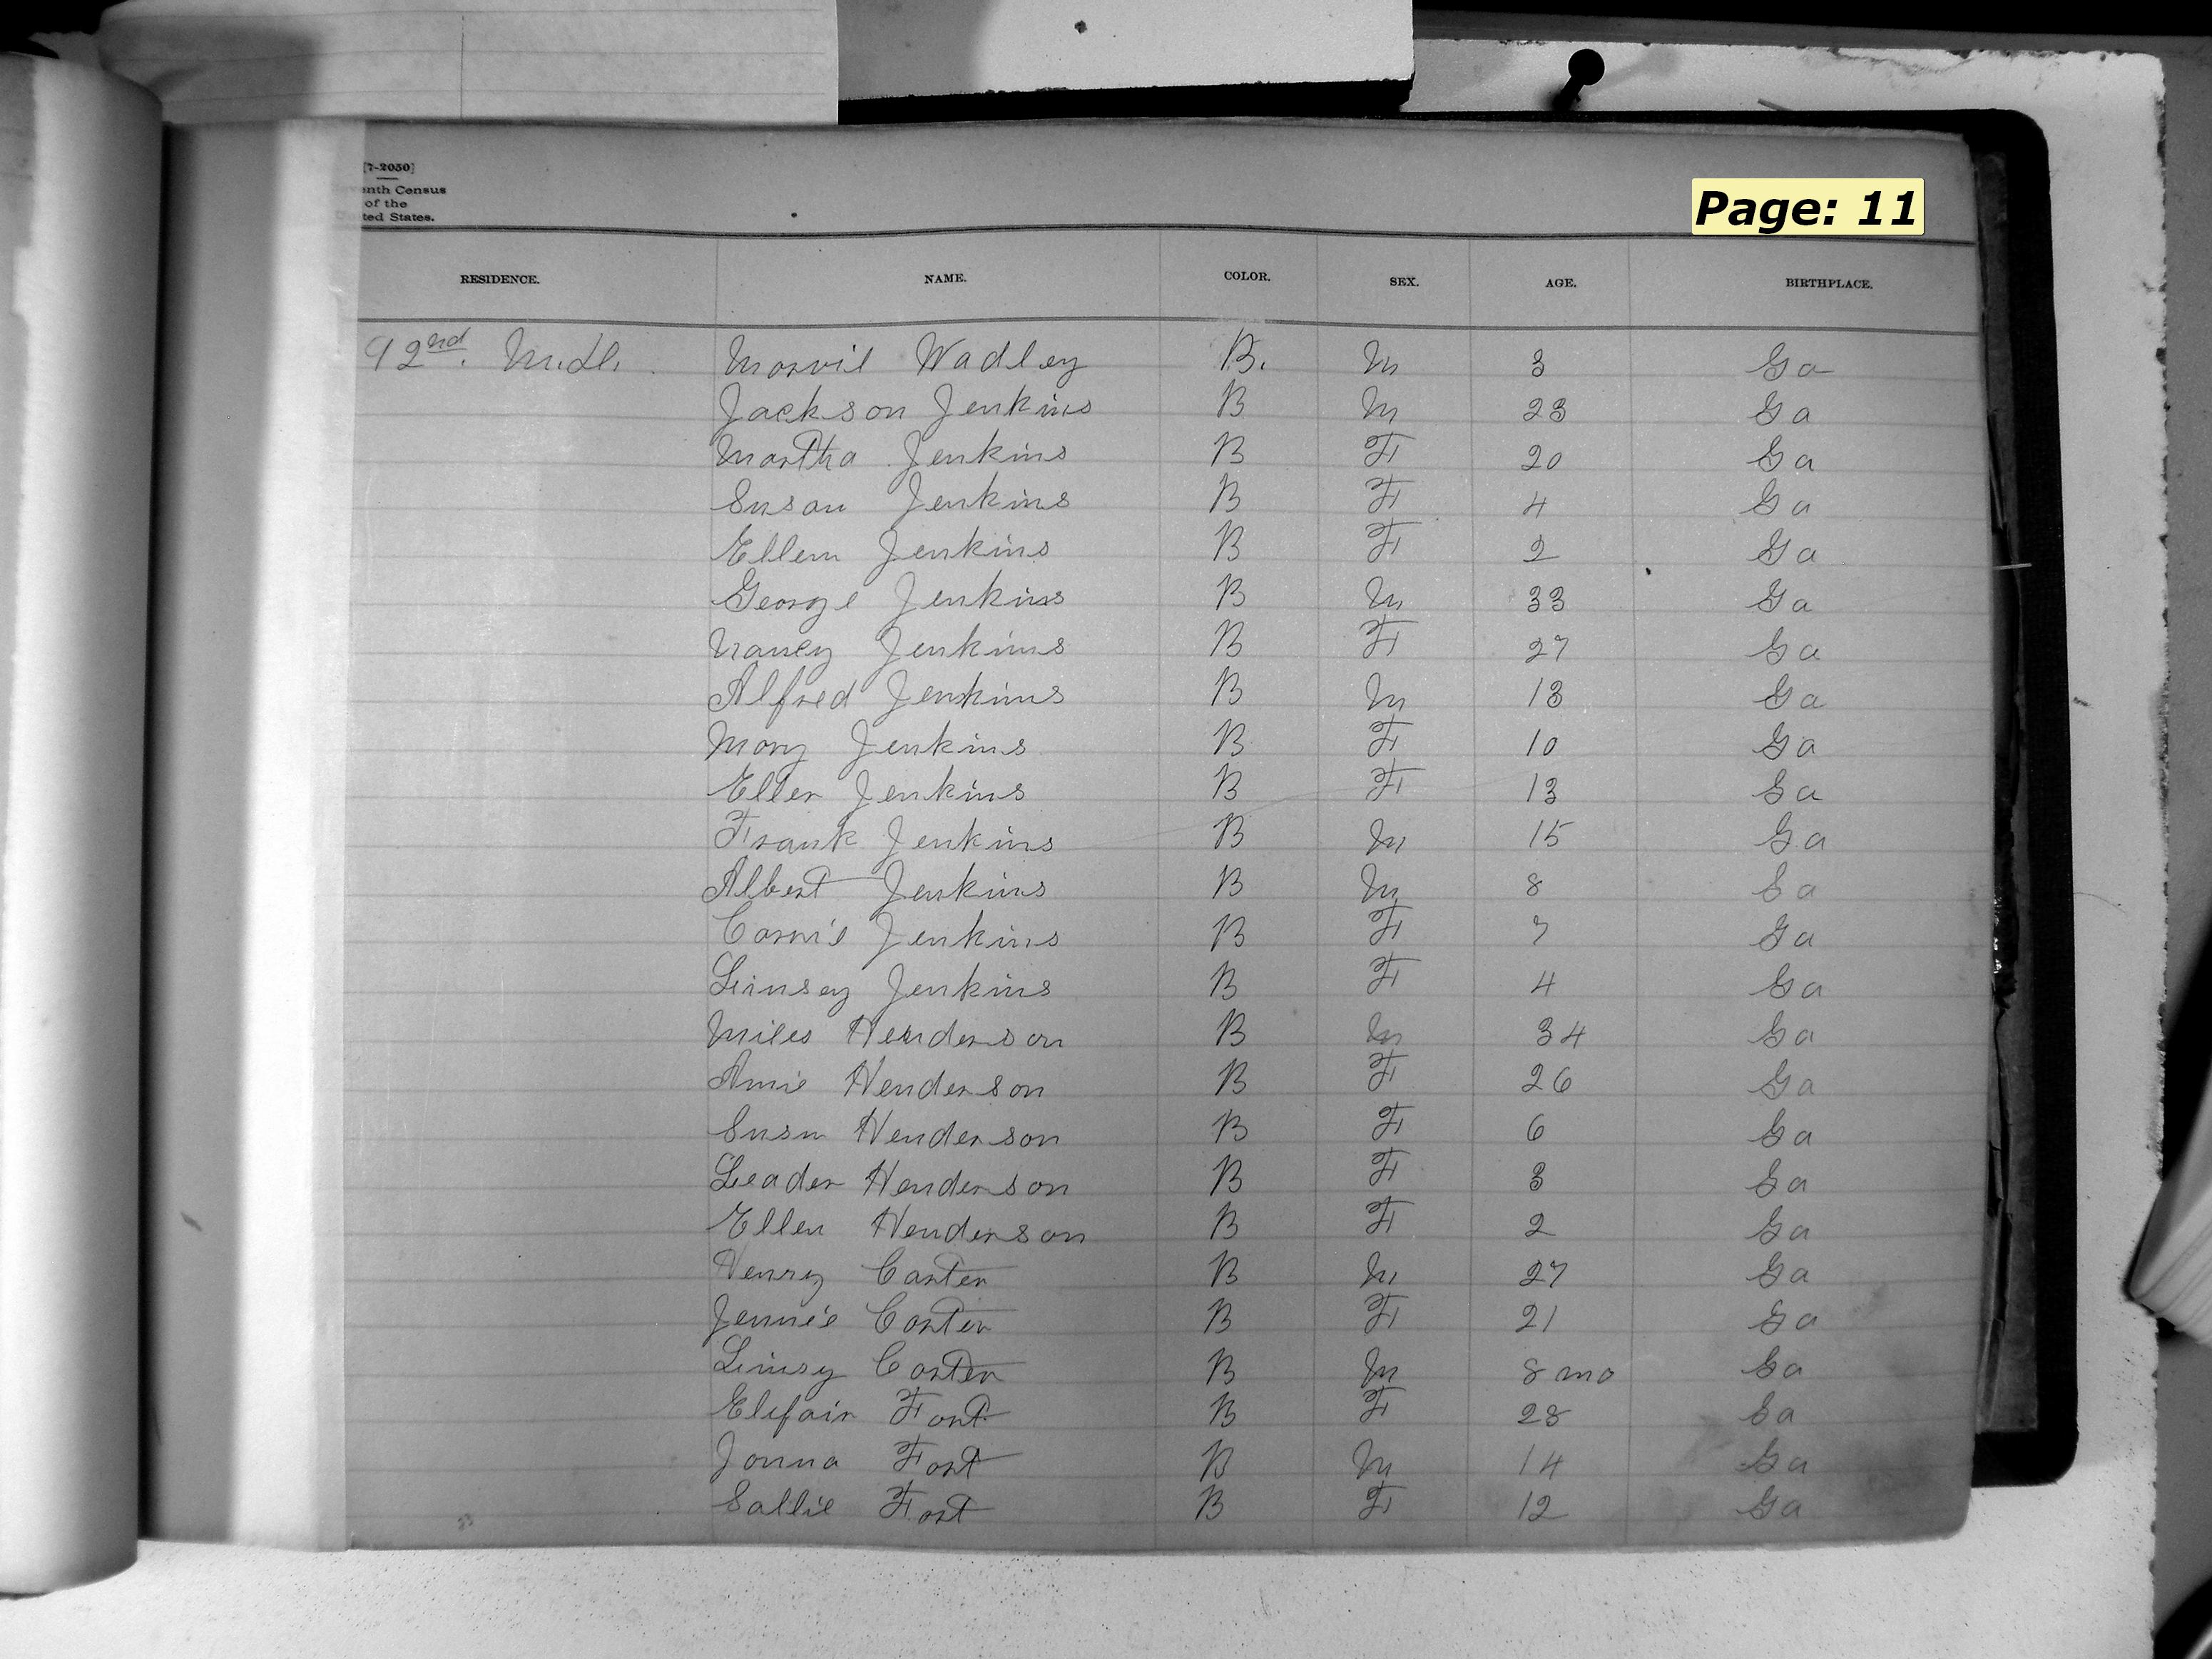 [7-2050]
enth Census
of the
ted States.
Page: 11
RESIDENCE. NAME. COLOR. SEX. AGE. BIRTHPLACE.
92nd. Marvil Wadley B. M 3 Ga
Jackson Jenkins B M 23 Ga
Martha Jenkins B F 20 Ga
Susan Jenkins B F 4 Ga
Ellem Jenkins B F 2 Ga
George Jenkins B M 33 Ga
Nancy Jenkins B F 27 Ga
Alfred Jenkins B M 13 Ga
Mary Jenkins B F 10 Ga
Eller Jenkins B F 13 Ga
Frank Jenkins B M 15 Ga
Albert Jenkins B M 8 Ga
Carrie Jenkins B F 7 Ga
Linsey Jenkins B F 4 Ga
Miles Henderson B M 34 Ga
Amie Henderson B F 26 Ga
Susn Henderson B F 6 Ga
Leader Henderson B F 3 Ga
Ellen Henderson B F 2 Ga
Henry Carter B M 27 Ga
Jennie Carter B F 21 Ga
Linsy Carter B M 8 mo Ga
Elifair Fort B F 28 Ga
Jonna Fort B M 14 Ga
Sallie Fort B F 12 Ga